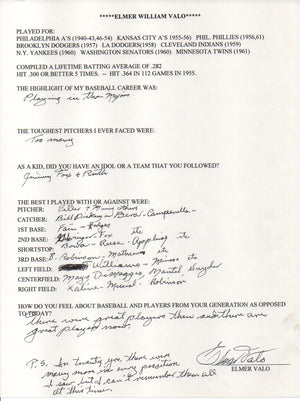 *****ELMER WILLIAM VALO*****
PLAYED FOR:
PHILADELPHIA A'S (1940-43,46-54) KANSAS CITY A'S (1955-56) PHIL. PHILLIES (1956,61)
BROOKLYN DODGERS (1957) LA DODGERS(1958) CLEVELAND INDIANS (1959)
N.Y. YANKEES (1960) WASHINGTON SENATORS (1960) MINNESOTA TWINS (1961)
COMPILED A LIFETIME BATTING AVERAGE OF .282
HIT .300 OR BETTER 5 TIMES. -- HIT .364 IN 112 GAMES IN 1955.
THE HIGHLIGHT OF MY BASEBALL CAREER WAS:
Playing in the Majors
THE TOUGHEST PITCHERS I EVER FACED WERE:
Too many
AS A KID, DID YOU HAVE AN IDOL OR A TEAM THAT YOU FOLLOWED?
Jimmy Foxx + Ruth
THE BEST I PLAYED WITH OR AGAINST WERE:
PITCHER: Feller + Many others
CATCHER: Bill Dickey - Berra - Campanella -
1ST BASE: Fain -
2ND BASE: Gehringer - Fox etc
SHORTSTOP: - Reese - Appling etc
3RD BASE: B. Robinson - Mathews etc
LEFT FIELD: Williams - etc
CENTERFIELD: Mays DiMaggio, Mantel Snyder
RIGHT FIELD: Kaline - Musial - Robinson
HOW DO YOU FEEL ABOUT BASEBALL AND PLAYERS FROM YOUR GENERATION AS OPPOSED
TO TODAY?
there were great players then and there are
great players now.
P.S. In twenty yrs. there were
many more in every position
I saw but I can't remember them all
at this time.
Elmer Valo
ELMER VALO